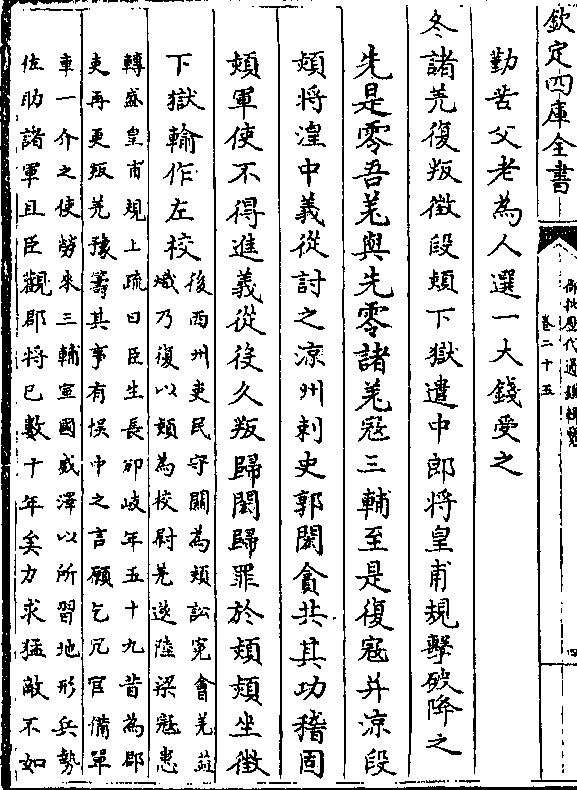 欽定四庫全書
御批歷代通鑑輯覽
卷二十五
四
勤苦父老為人選一大錢受之
冬諸羌復叛徵段熲下獄遣中郎將皇甫規擊破降之
先是零吾羌與先零諸羌寇三輔至是復寇并涼段
熲將湟中義從討之涼州刺史郭閎貪共其功稽固
熲軍使不得進義從役久叛歸閎歸罪於熲熲坐徵
下獄輸作左校
後西州吏民守闕為熲訟寃會羌益
熾乃復以熲為校尉羌遂陸梁寇患
轉盛皇甫規上疏曰臣生長邠岐年五十九昔為郡
吏再更叛羌豫籌其事有悞中之言願乞冗官備單
車一介之使勞來三輔宣國威澤以所習地形兵勢
佐助諸軍且臣觀郡將已數十年矣力求猛敵不如